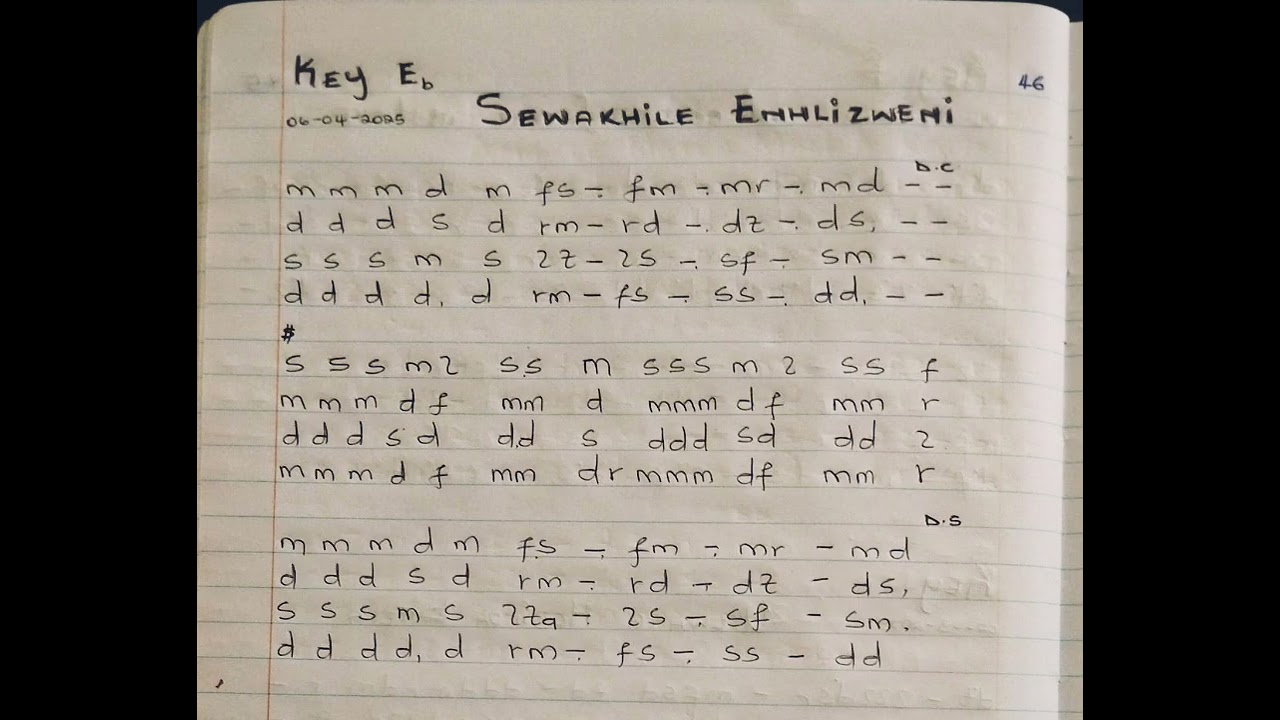 KEY Eb
46
06-04-2025 SEWAKHILE ENHLIZWENI
D.C
m m m d m fs ÷ fm ÷ mr ÷ md - -
d d d s d rm - rd -. dz -. ds, - -
s s s m s 2z - 2s ÷ sf ÷ sm - -
d d d d, d rm - fs ÷ ss ÷ dd, - -
$
s s s m 2 s.s m s s s m 2 ss f
m m m d f mm d mmm df mm r
d d d s d d.d s ddd sd dd 2
m m m d f mm dr mmm df mm r
D.S
m m m d m f.s ÷ fm ÷ mr - md
d d d s d rm ÷ rd ÷ dz - ds,
s s s m s 2za ÷ 2s ÷ sf - sm.
d d d d, d rm ÷ fs ÷ ss - dd